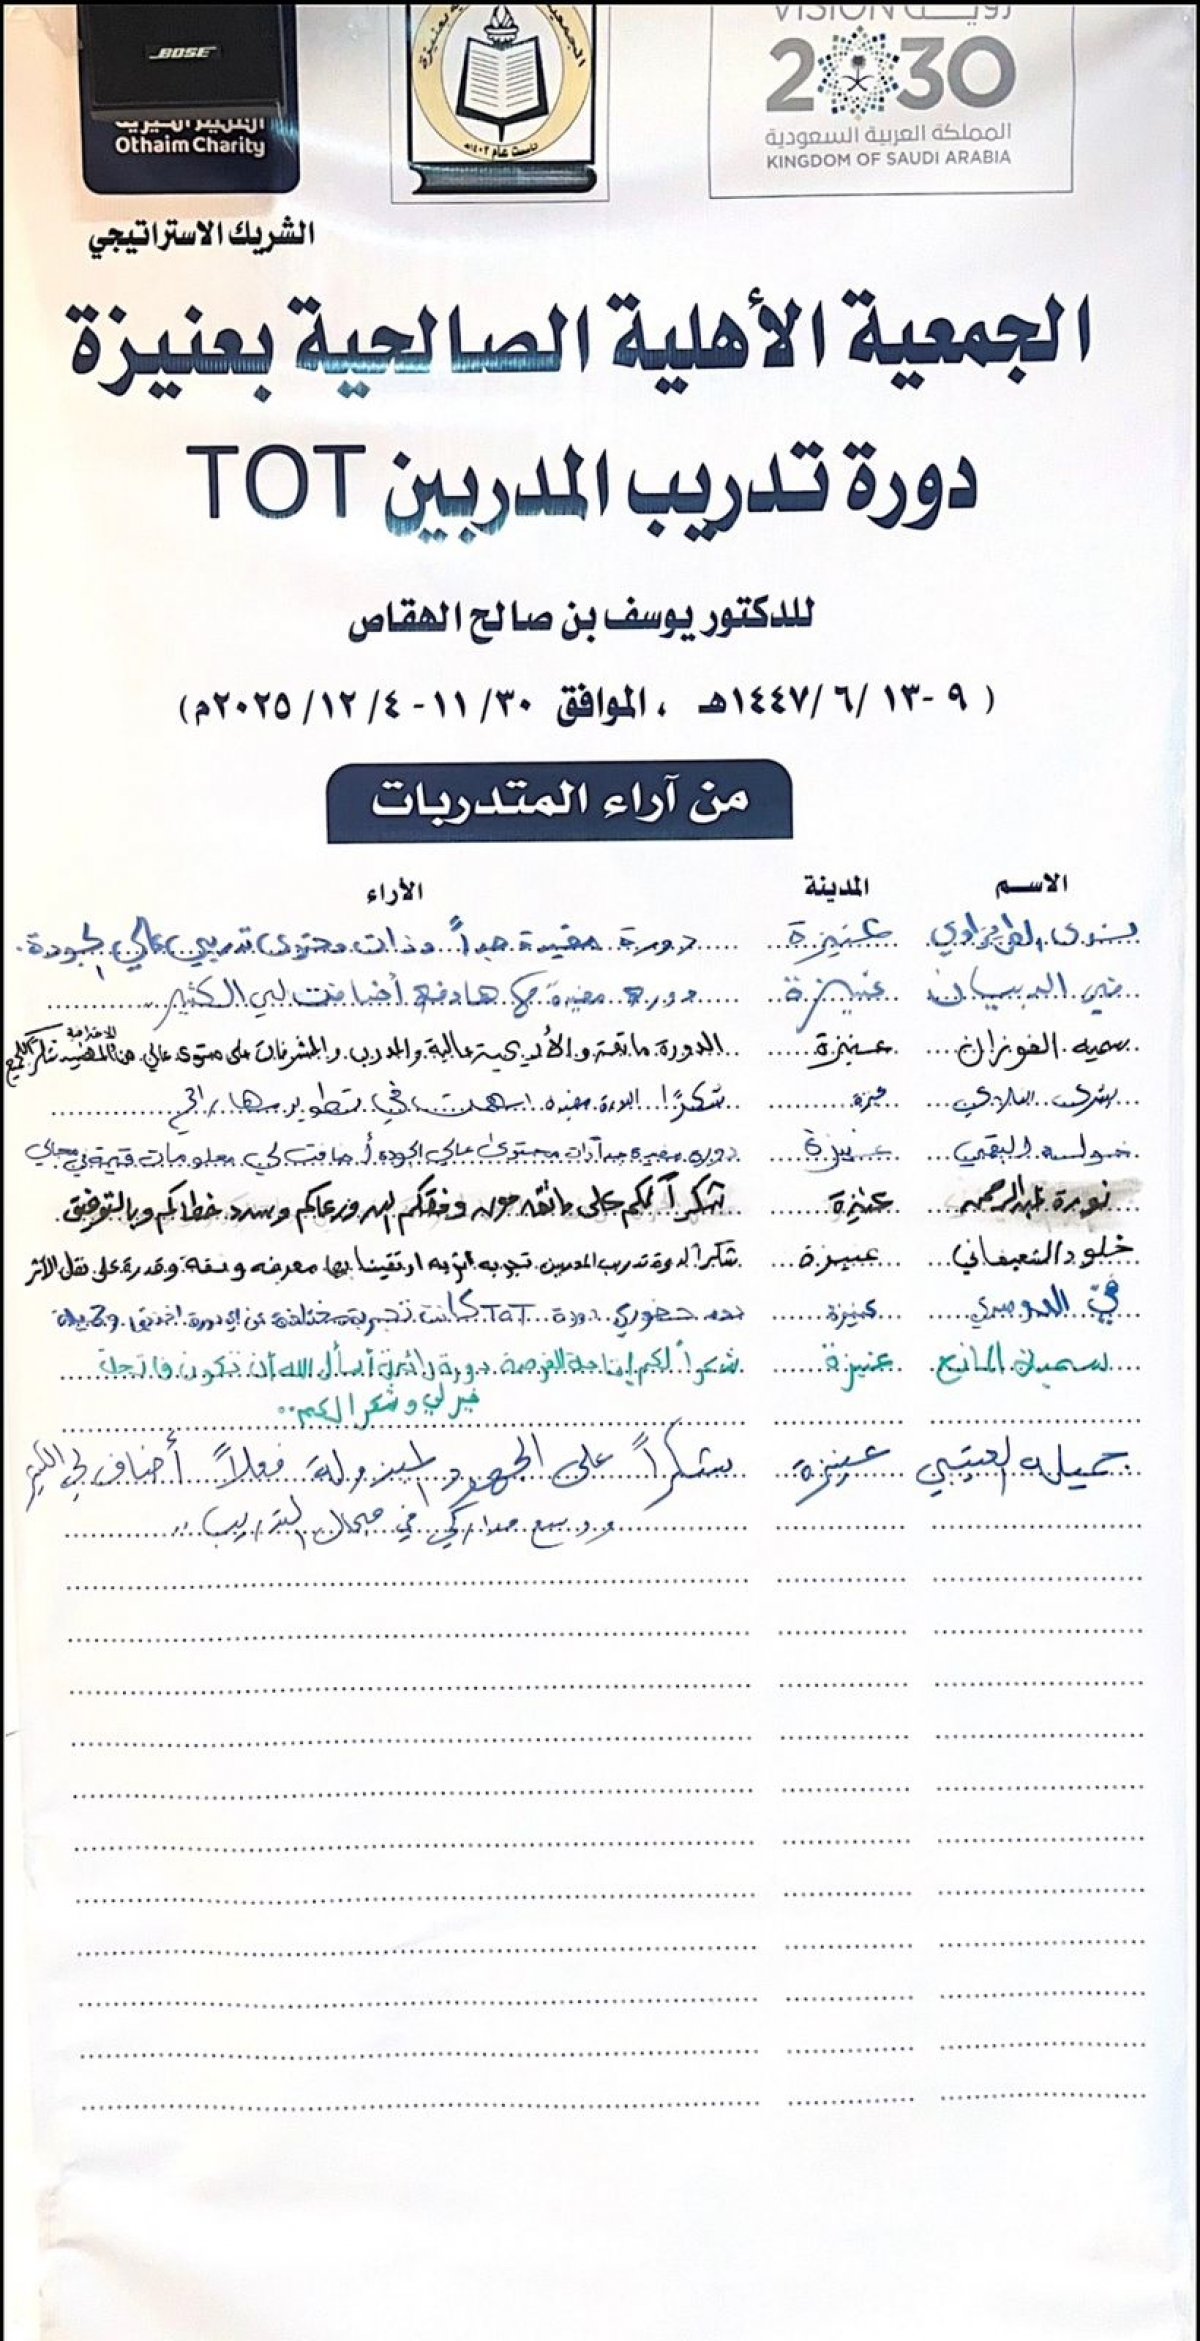 BOSE
Othaim Charity
الشريك الاستراتيجي
تأسست عام ١٤٠٢هـ
VISION رؤيـــة
2030
المملكة العربية السعودية
KINGDOM OF SAUDI ARABIA
الجمعية الأهلية الصالحية بعنيزة
دورة تدريب المدربين TOT
للدكتور يوسف بن صالح الهقاص
( ٩ -١٣ /٦ /١٤٤٧هـ ، الموافق ١١/٣٠ - ١٢/٤ /٢٠٢٥م)
من آراء المتدربات
الاسم المدينة الأراء
عنيزة دورة مفيدة جداً وذات محتوى تدريبي عالي الجودة.
عنيزة دوره مفيدة هادفه أضافت لي الكثير
سميه الفوزان عنيزة الدورة ماتعة والأريحية عالية والمدرب والمشرفات على مستوى عالي من المهنية الاحترافية شكراً للجميع
بشرى عنيزة شكرًا الدورة مفيده اسهمت في تطوير مهاراتي
خولة عنيزة دورة مفيدة جداً ذات محتوى عالي الجودة أضافت لي معلومات قيمة في مجالي
نورة عبدالرحمن عنيزة شكراً لكم على ماتقدمونه وفقكم الله ورعاكم وسدد خطاكم وبالتوفيق
خلود عنيزة شكراً لدورة تدريب المدربين تجربه ثريه ارتقينا بها معرفه وثقة وقدرة على نقل الأثر
عنيزة حضوري دورة TOT كانت تجربة مختلفة عن اي دورة
سمية المانع عنيزة شكراً لكم إتاحة الفرصة دورة رائعة أسأل الله أن تكون فاتحة
خير لي وشكرا لكم..
جميلة العتيبي عنيزة شكراً على الجهود المبذولة فعلاً أضاف لي الكثير
ووسع مداركي في مجال التدريب